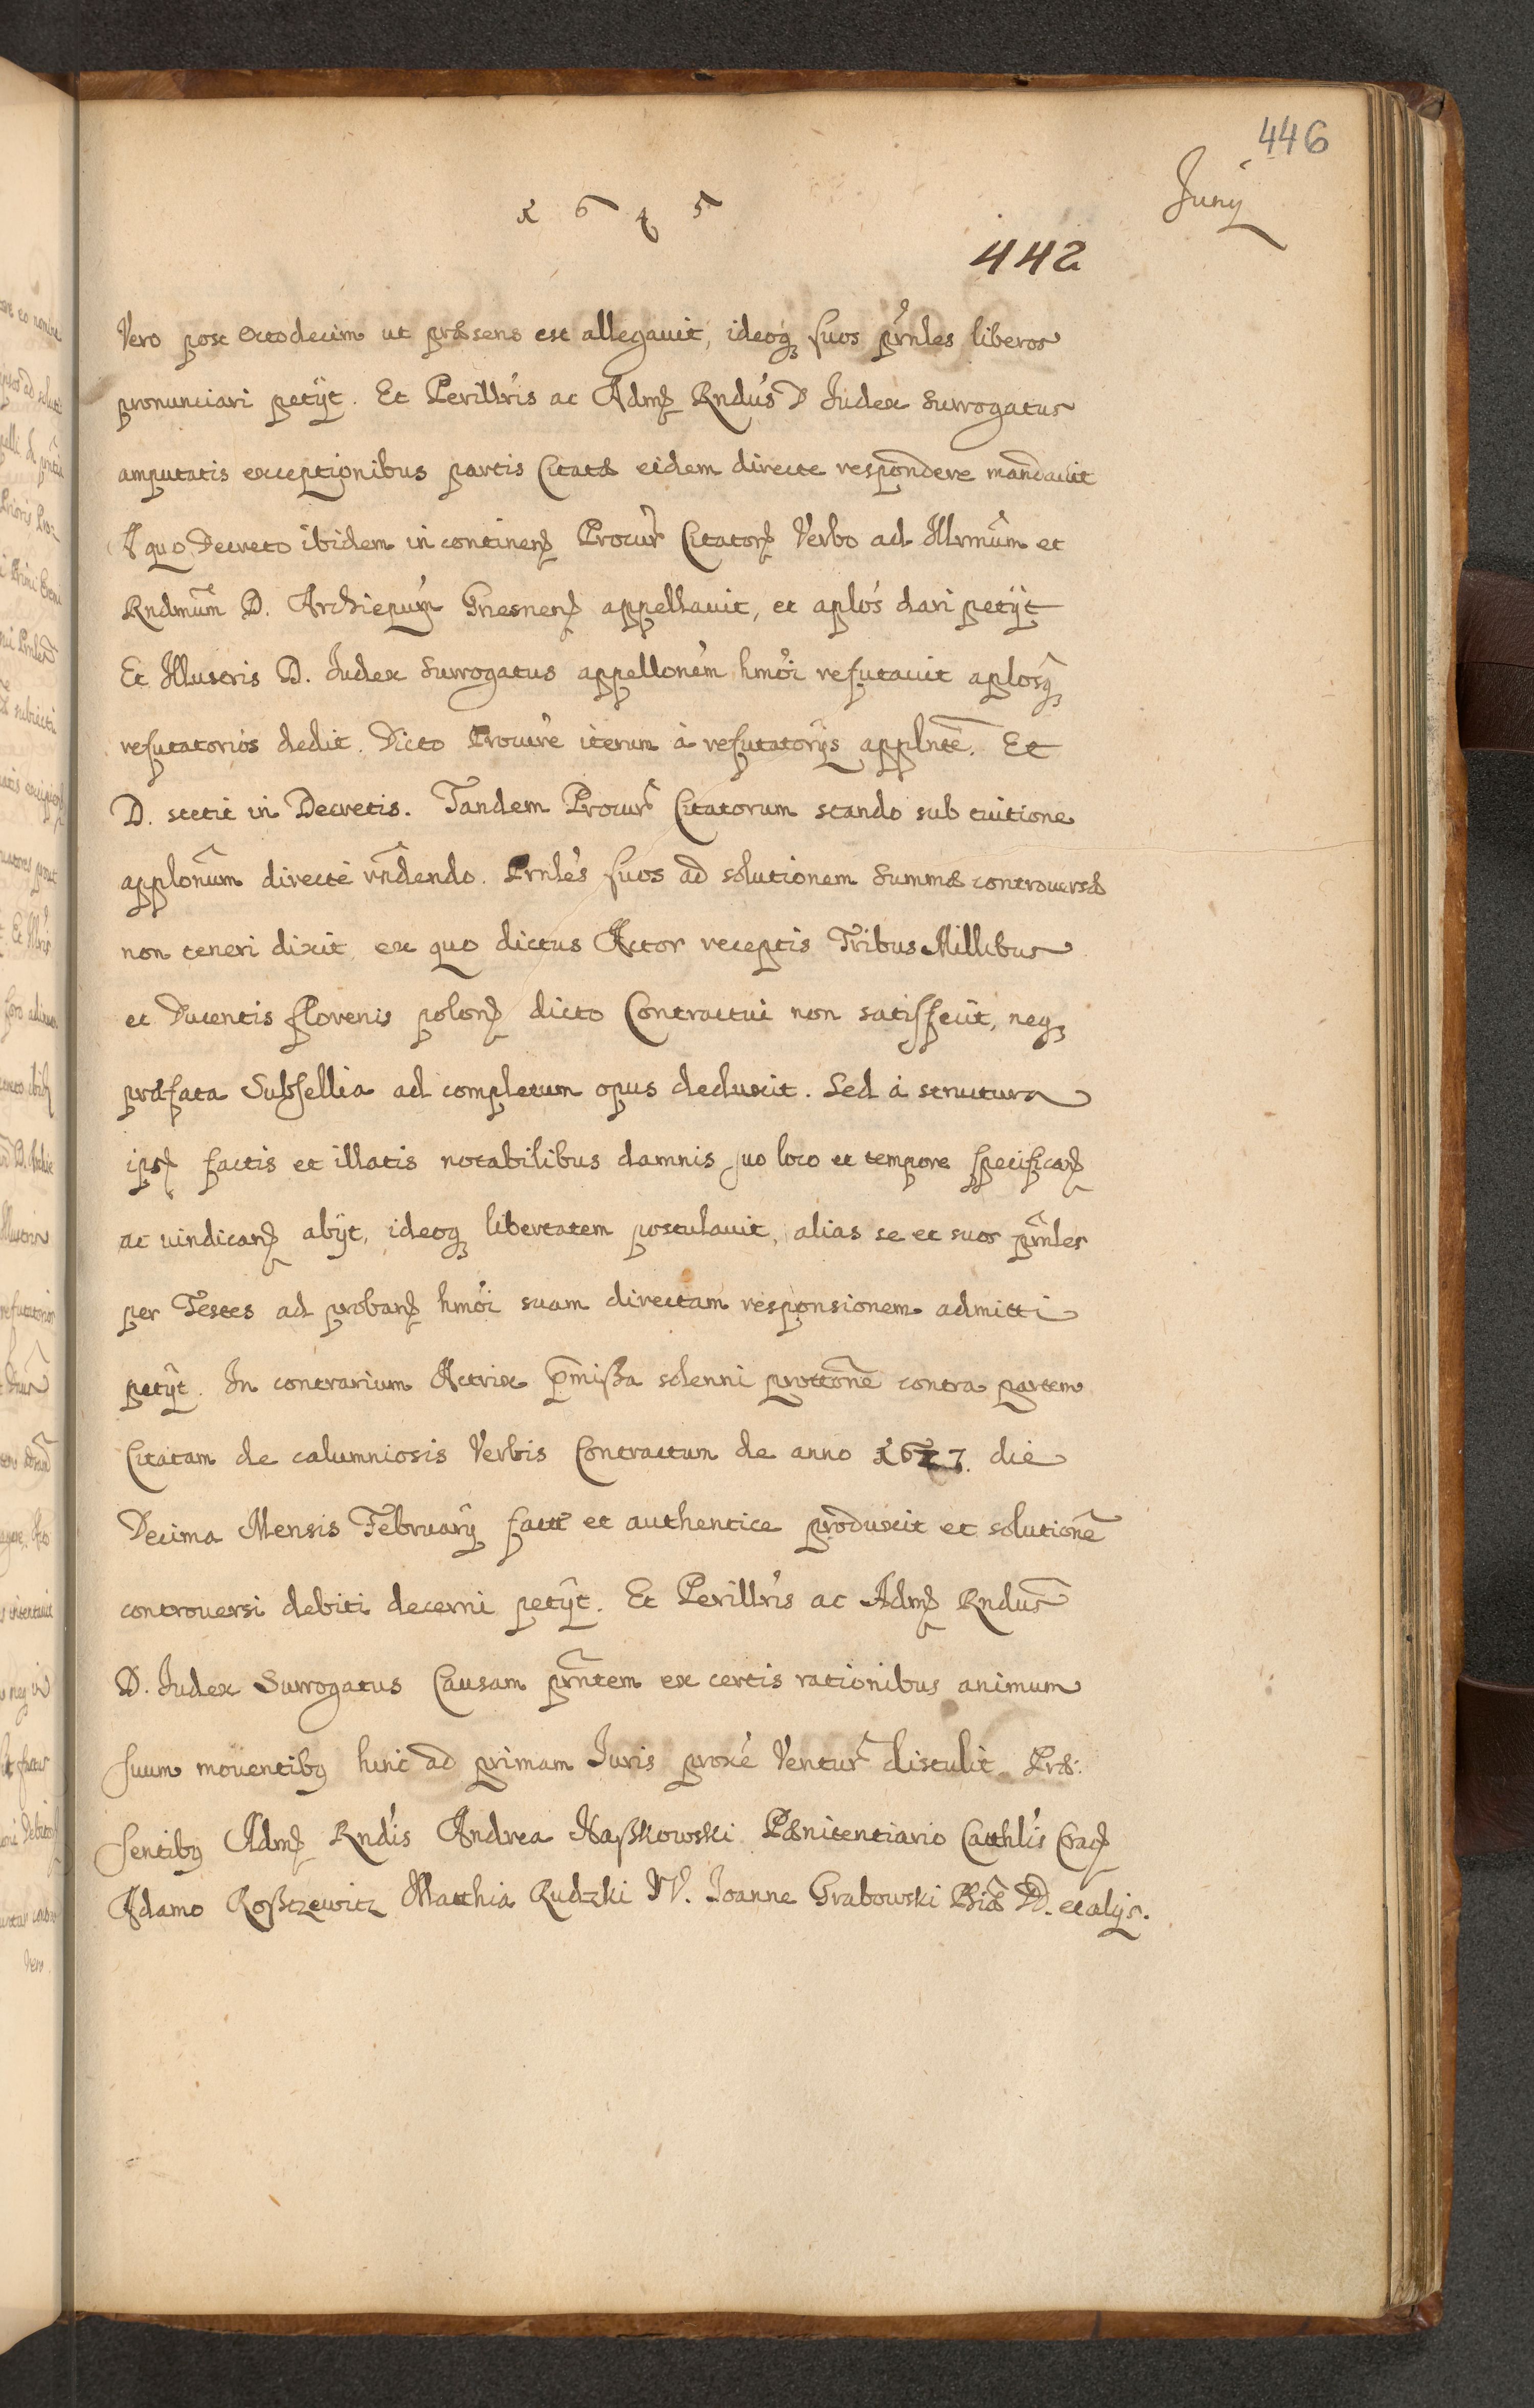 446
Juny
1645
442
Vero post octodecim ut præsens est allegauit, ideoq suos prnles liberos
pronunciari petijt. Et Perillris ac Adm Rndus D Judex Surrogatus
amputatis exceptionibus partis Citatæ eidem directe respondere mandauit
A quo Decreto ibidem in continen Procur Citator Verbo ad Illrmum et
Rndmum D. Archiepum Gnesnen appellauit, et aplos dari petijt
Et Illustris D. Judex Surrogatus appellonem hmoi refutauit aplosq
refutatorios dedit. Dicto Procure iterum à refutatorijs applnte. Et
D. stetit in Decretis. Tandem Procur Citatorum stando sub tuitione
applonum directè rndendo. Prnles suos ad solutionem Summæ controuersæ
non teneri dixit, ex quo dictus Actor receptis Tribus Millibus
et Ducentis florenis polon dicto Contractui non satisfecit, neq
præfata Subsellia ad completum opus deduxit. Sed à structura
ips factis et illatis notabilibus damnis suo loco et tempore specifican
ac uindican abijt, ideoq libertatem postulauit, alias se et suos prnles
per Testes ad proban hmoi suam directam responsionem admitti
petijt. In contrarium Actrix pmissa solenni prottone contra partem
Citatam de calumniosis Verbis Contractum de anno 1627. die
Decima Mensis February factu et authentice produxit et solutione
controuersi debiti decerni petijt. Et Perillris ac Adm Rndus
D. Judex Surrogatus Causam prntem ex certis rationibus animum
suum mouentibq hinc ad primam Juris proxè Ventur distulit. Præ:
sentibq Adm Rndis Andrea Naßkowski Pænitentiario Catthlis Crac
Adamo Roßtzewitz Matthia Rudzki N. Joanne Grabowski DD. et alijs.